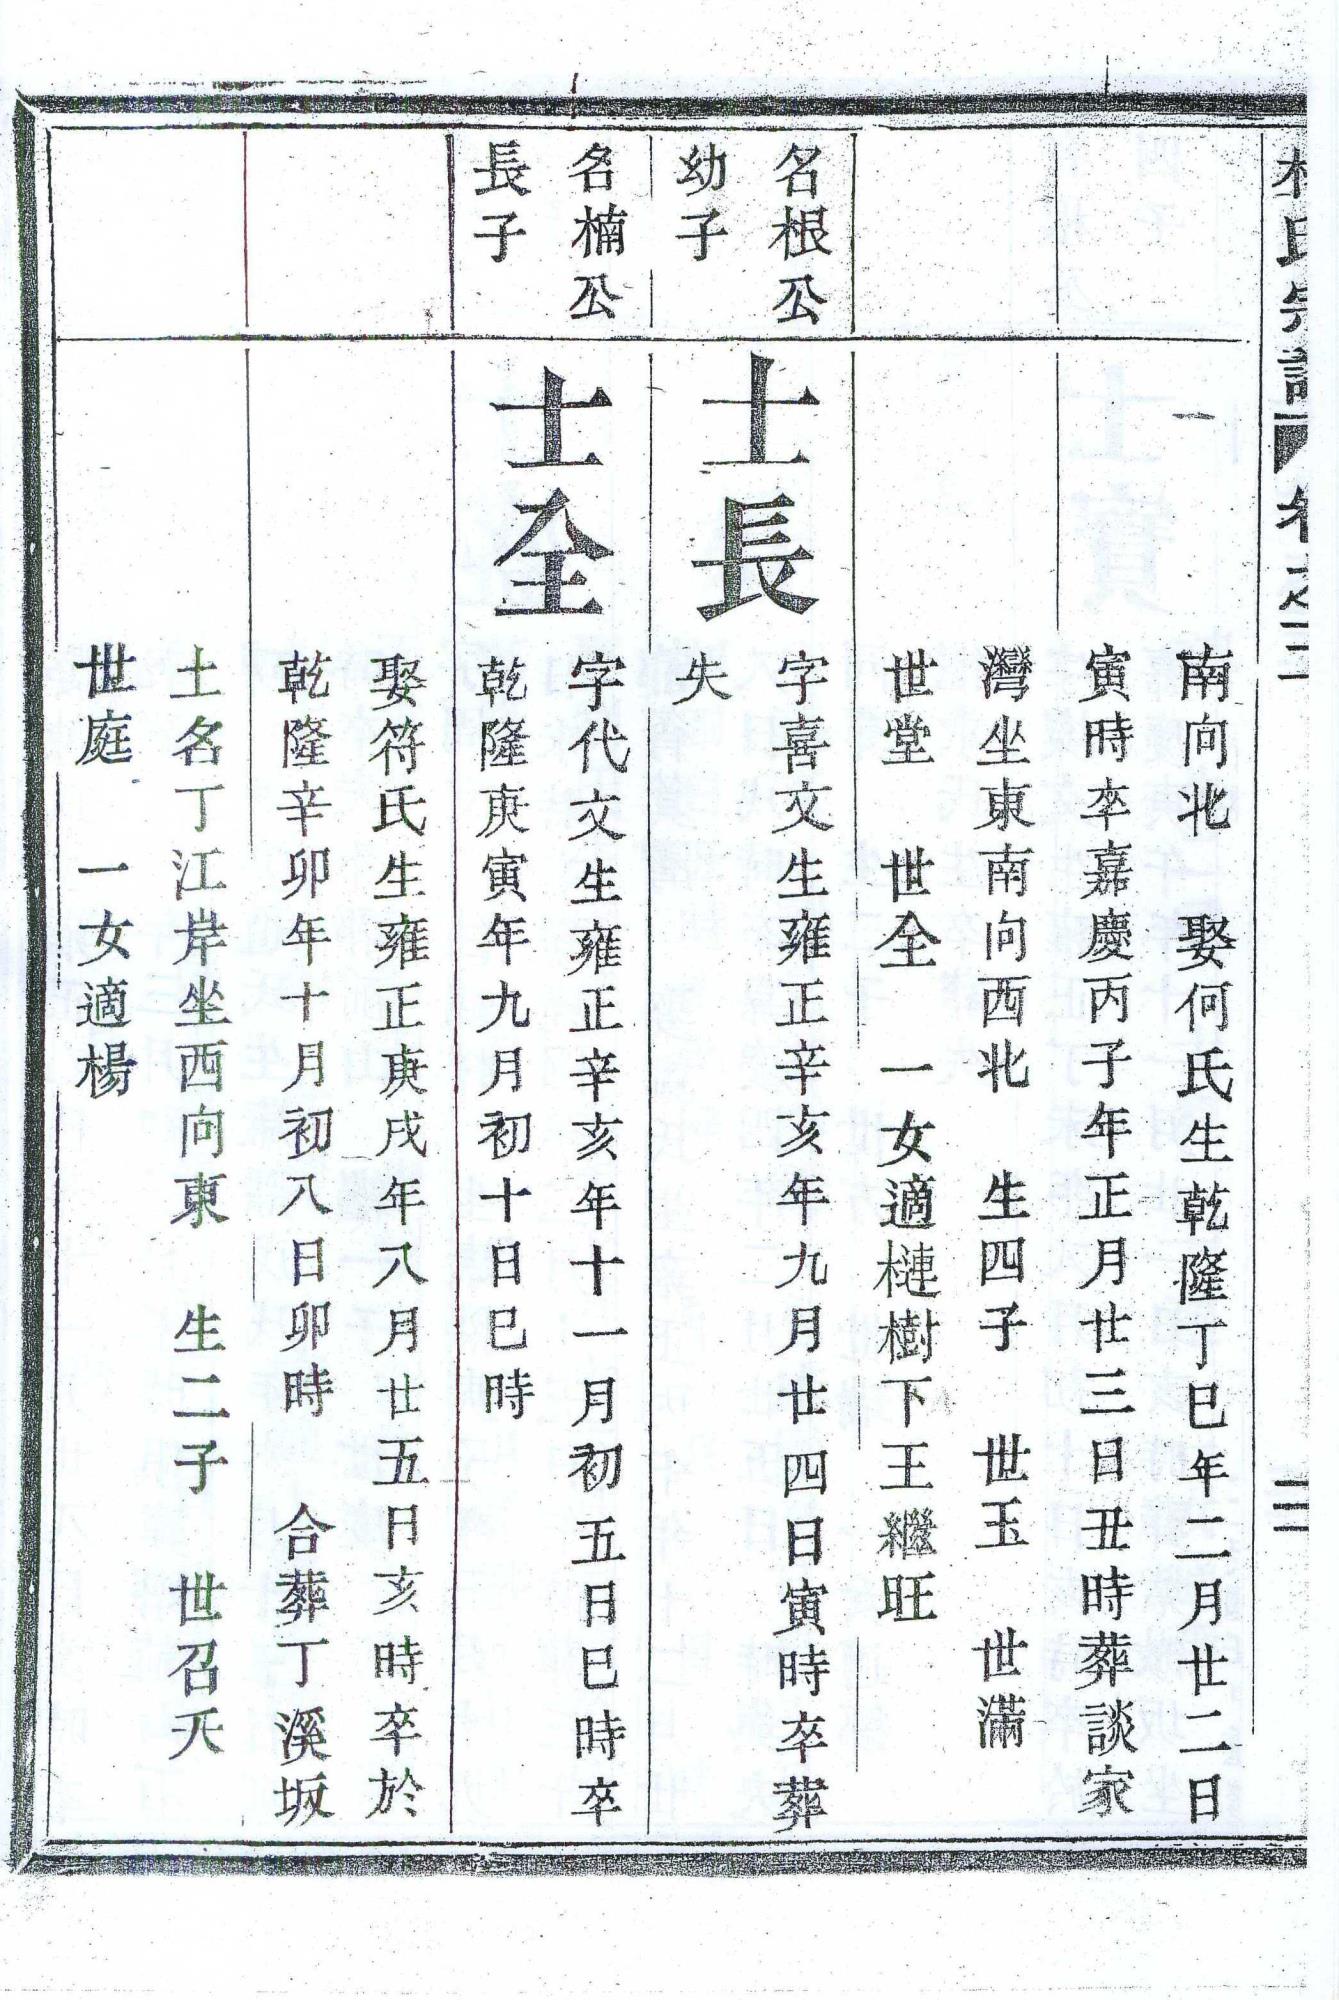 氏宗譜 卷之二 二
南向北 娶何氏生乾隆丁巳年二月廿二日
寅時卒嘉慶丙子年正月廿三日丑時葬談家
灣坐東南向西北 生四子 世玉 世滿
世堂 世全 一女適槤樹下王繼旺
名根公
幼子
士長
字喜文生雍正辛亥年九月廿四日寅時卒葬
失
名楠公
長子
士全
字代文生雍正辛亥年十一月初五日巳時卒
乾隆庚寅年九月初十日巳時
娶符氏生雍正庚戌年八月廿五日亥時卒於
乾隆辛卯年十月初八日卯時 合葬丁溪坂
土名丁江岸坐西向東 生二子 世召兲
世庭 一女適楊